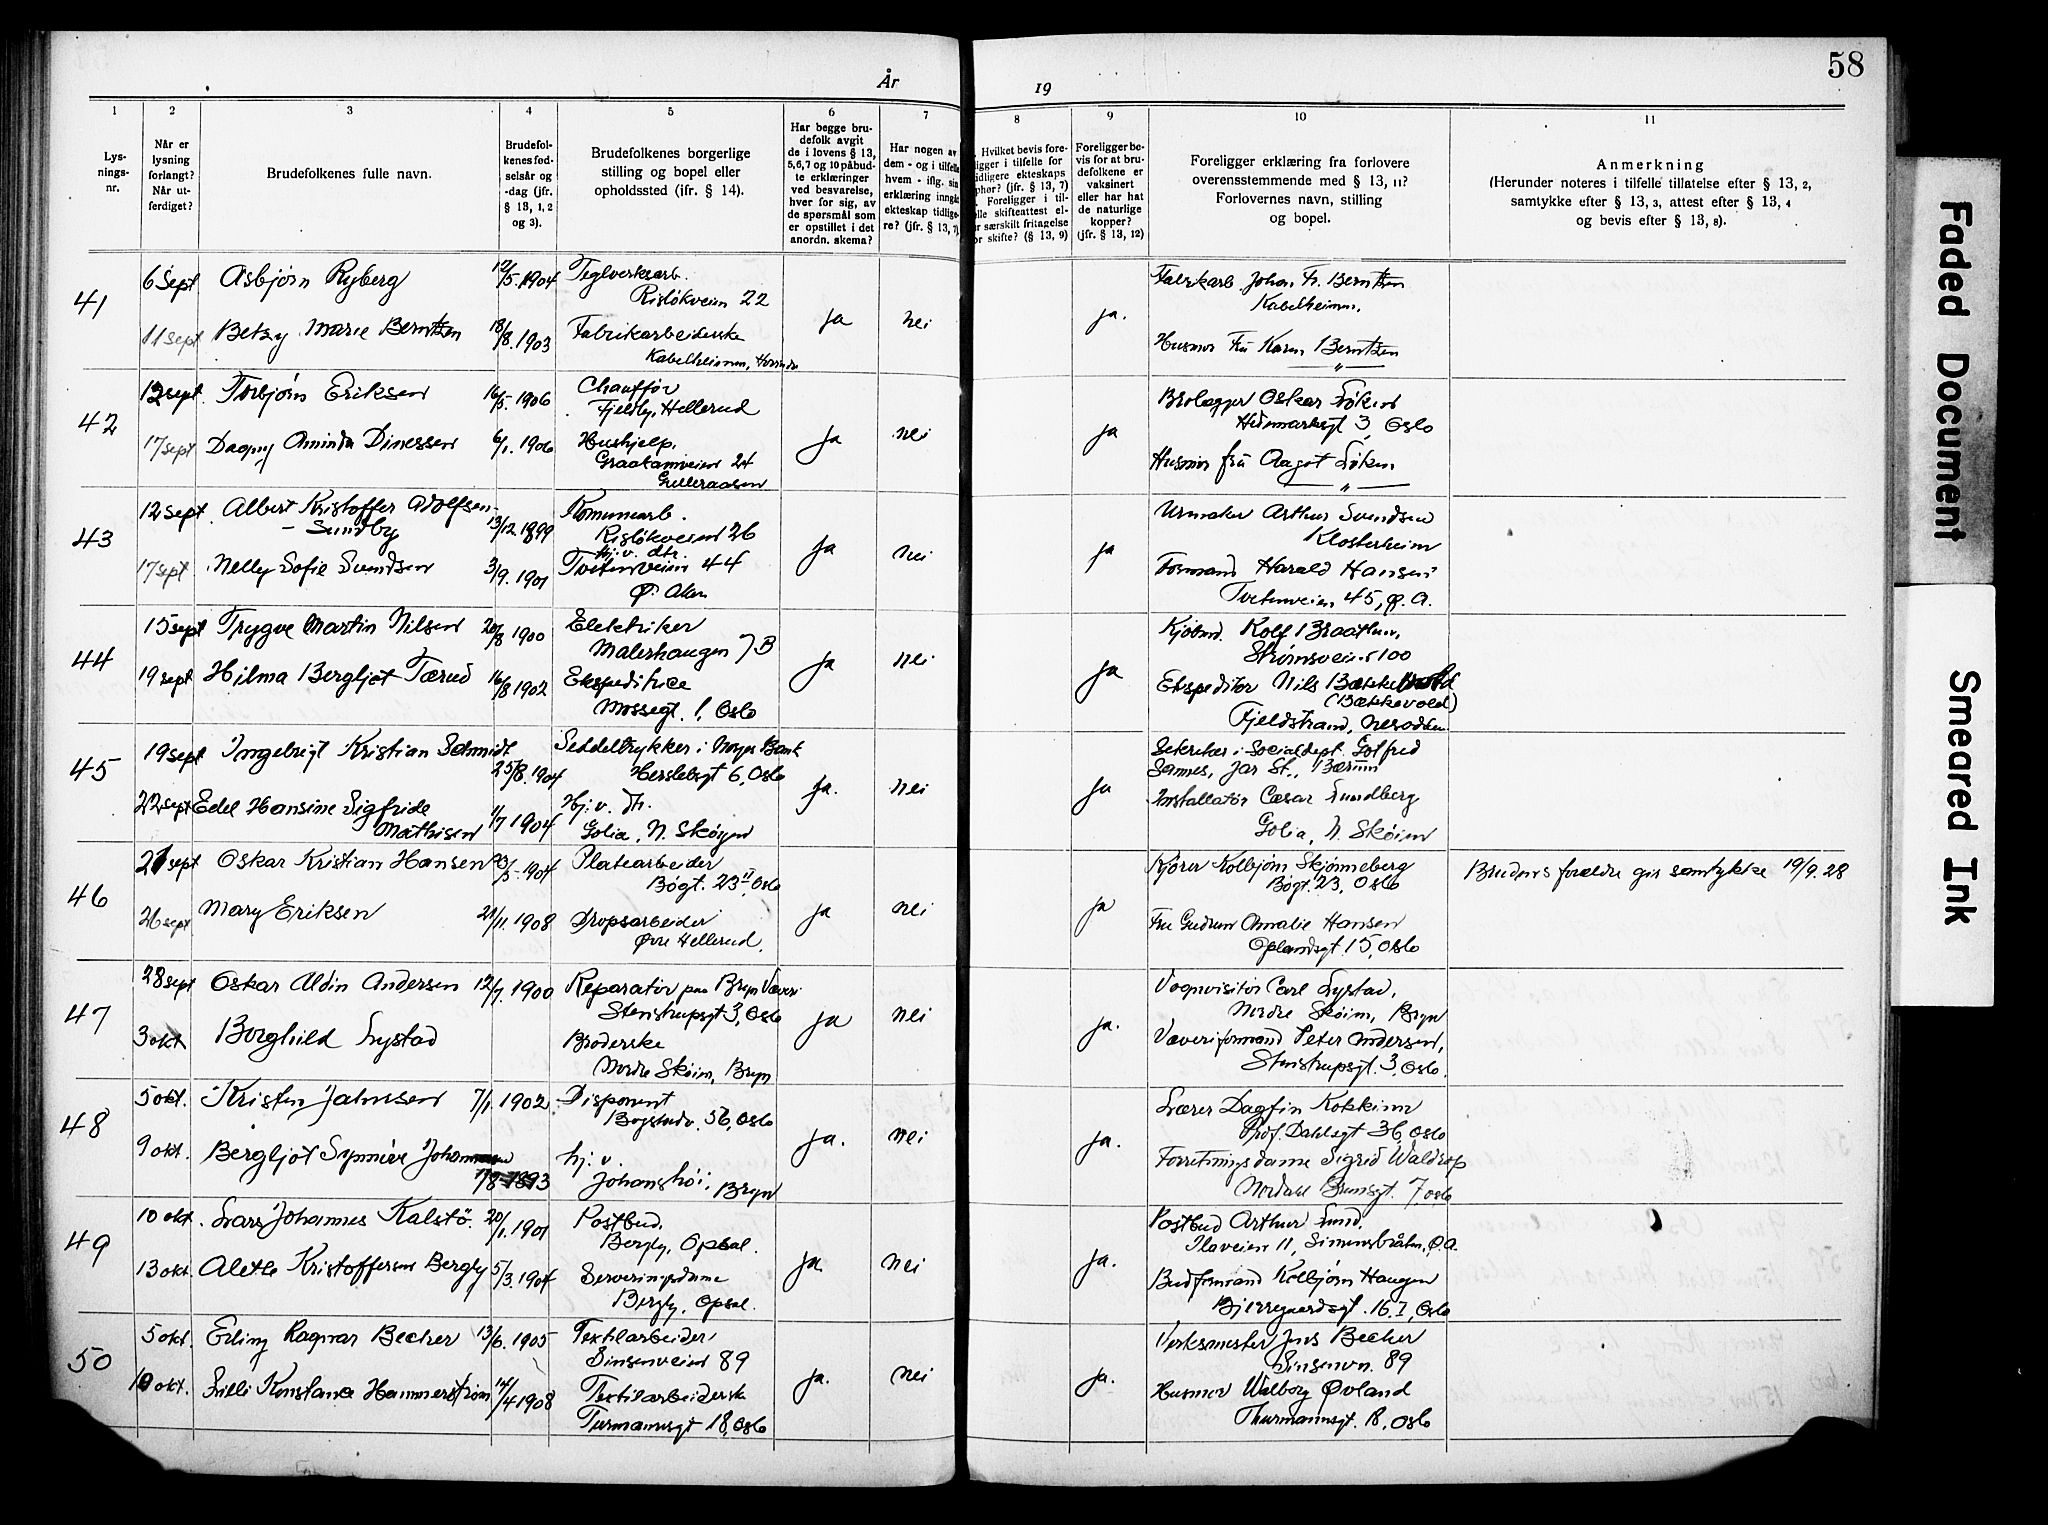 58
År
19
1
2
3
4
5
6
7
8
9
10
11
Lys-
nings-
nr.
Når er
lysning
forlangt?
Når ut-
ferdiget?
Brudefolkenes fulle navn.
Brudefol-
kenes fød-
selsår og
-dag (jfr.
§ 13, 1, 2
og 3).
Brudefolkenes borgerlige
stilling og bopel eller
opholdssted (jfr. § 14).
Har begge bru-
defolk avgit
de i lovens § 13,
5,6,7 og 10 påbud-
te erklæringer
ved besvarelse,
hver for sig, av
de spørsmål som
er opstillet i det
anordn. skema?
Har nogen av
dem - og i tilfelle
hvem - iflg. sin
erklæring inngå
ekteskap tidlige-
re? (jfr. § 13, 7)
Hvilket bevis fore-
ligger i tilfelle for
tidligere ekteskaps
ophør? (jfr. § 13, 7)
Foreligger i til-
elle skifteattest el-
r særskilt fritagelse
or skifte? (§ 13, 9)
Foreligger be-
vis for at bru-
defolkene er
vaksinert
eller har hat
de naturlige
kopper?
(jfr. § 13, 12)
Foreligger erklæring fra forlovere
overensstemmende med § 13, 11?
Forlovernes navn, stilling
og bopel.
Anmerkning
(Herunder noteres i tilfelle tillatelse efter § 13, 2,
samtykke efter § 13, 3, attest efter § 13, 4
og bevis efter § 13, 8).
41
6 Sept Asbjørn Ryberg 12/5. 1904 Teglverksarb.
Risløkveien 22
Fabrikarb. Johan Fr. Berntzen
Kabelheimen.
11 sept Betzy Marie Berntzen 18/8. 1903 Fabrikarbeiderske
Kabelheimen,
ja nei ja.
Husmor Fru Karen Berntzen
— " —
42
12 sept. Torbjørn Eriksen 16/5. 1906 Chauffør
Fjeldby, Hellerud
Brolægger Oskar Løken
Hedmarksgt 3, Oslo
17 sept Dagny Aminda Dinessen 6/1. 1906 Hushjelp.
Graakamveien 24
Gulleraasen
ja nei ja
Husmor fru Aagot Løken
— " —
43
12 sept. Albert Kristoffer Adolfsen-
- Sundby 13/12. 1899 Komunearb.
Risløkveien 26
Urmaker Arthur Svendsen
Klosterheim
17 sept Nelly Sofie Svendsen 3/9. 1901 hj. v. dtr.
Tvetenveien 44
Ø. Aker
ja nei ja
Formand Harald Hansen
Tvetenveien 45, Ø. A.
44
15 sept Trygve Martin Nilsen 20/8 1900 Elektriker
Malerhaugen 7B
Kjøbmd. Rolf Braathen,
Strømsveien 100
19 sept Hilma Bergljot Tærud 16/8 1902 Ekspeditrice
Mossegt. 1, Oslo
ja nei ja
Ekspeditør Nils
(Bækkevold)
Fjeldstrand, Nesodden
45
19 sept Ingebrigt Kristian Schmidt
25/8. 1904 Seddeltrykker i Norges Bank
Herslebsgt 6, Oslo
Sekretær i Socialdept. Gotfred
Sannes, Jar St., Bærum
22 sept Edel Hansine Sigfride
Mathisen 1/7 1904 Hj. v. dtr.
Golia, N. Skøyen
ja. nei ja
Installatør Cæsar Lundberg
Golia, N. Skøien
46
21 sept Oskar Kristian Hansen 23/5. 1904 Platearbeider
Bøgt. 23 II, Oslo
Kjører Kolbjørn Skjønneberg
Bøgt. 23, Oslo
Brudens forældre gir samtykke 19/9. 28
26 sept Mary Eriksen 21/11. 1908 Dropsarbeider
Øvre Hellerud.
ja nei ja
Fru Gudrun Amalie Hansen
Oplandsgt. 15, Oslo
47
28 sept Oskar Aldin Andersen 12/7. 1900 Reparatør paa Bryn Væveri
Stenstrupsgt 3, Oslo
Vognvisitør Carl Lystad,
Nordre Skøien, Bryn
3 okt Borghild Lystad Broderske
Nordre Skøien, Bryn
ja nei ja.
Væveriformand Peter Andersen,
Stenstrupsgt. 3, Oslo.
48
5 okt. Kristen Jahnsen 7/1. 1902. Disponent
Bogstadv. 56, Oslo
Lærer Dagfin Kokkinn
Prof. Dahlsgt 36, Oslo
9 okt. Bergljot Synnøve
7/8 1893 hj. v.
Johanshøi, Bryn
ja. nei ja.
Forretningsdame Sigrid Waldrop
Nordahl Brunsgt. 7, Oslo
49
10 okt. Lars Johannes Kalstø. 20/1. 1901 Postbud,
Bergly, Opsal.
Postbud Arthur Lund,
Plaveien 11, Simensbråten, Ø. A.
13 okt. Alethe Kristoffersen Bergly 5/3. 1904 Serveringsdame
Bergly, Opsal.
ja. nei ja.
Budformand Kolbjørn Haugen
Bjerregaardsgt. 16 I, Oslo
50
5 okt. Erling Ragnar Becher 13/6. 1905 Textilarbeider
Sinsenveien 89
Verksmester Jens Becher
Sinsenvn. 89
10 okt. Lilli Konstanse Hammerstrøm 14/4 1908 Textilarbeiderske
Turmannsgt 18, Oslo
ja. nei ja.
Husmor Walborg Øvland
Thurmannsgt. 18, Oslo
Faded Document
Smeared Ink